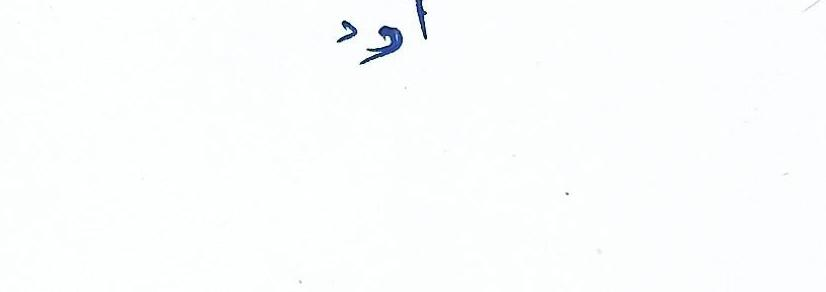 اود